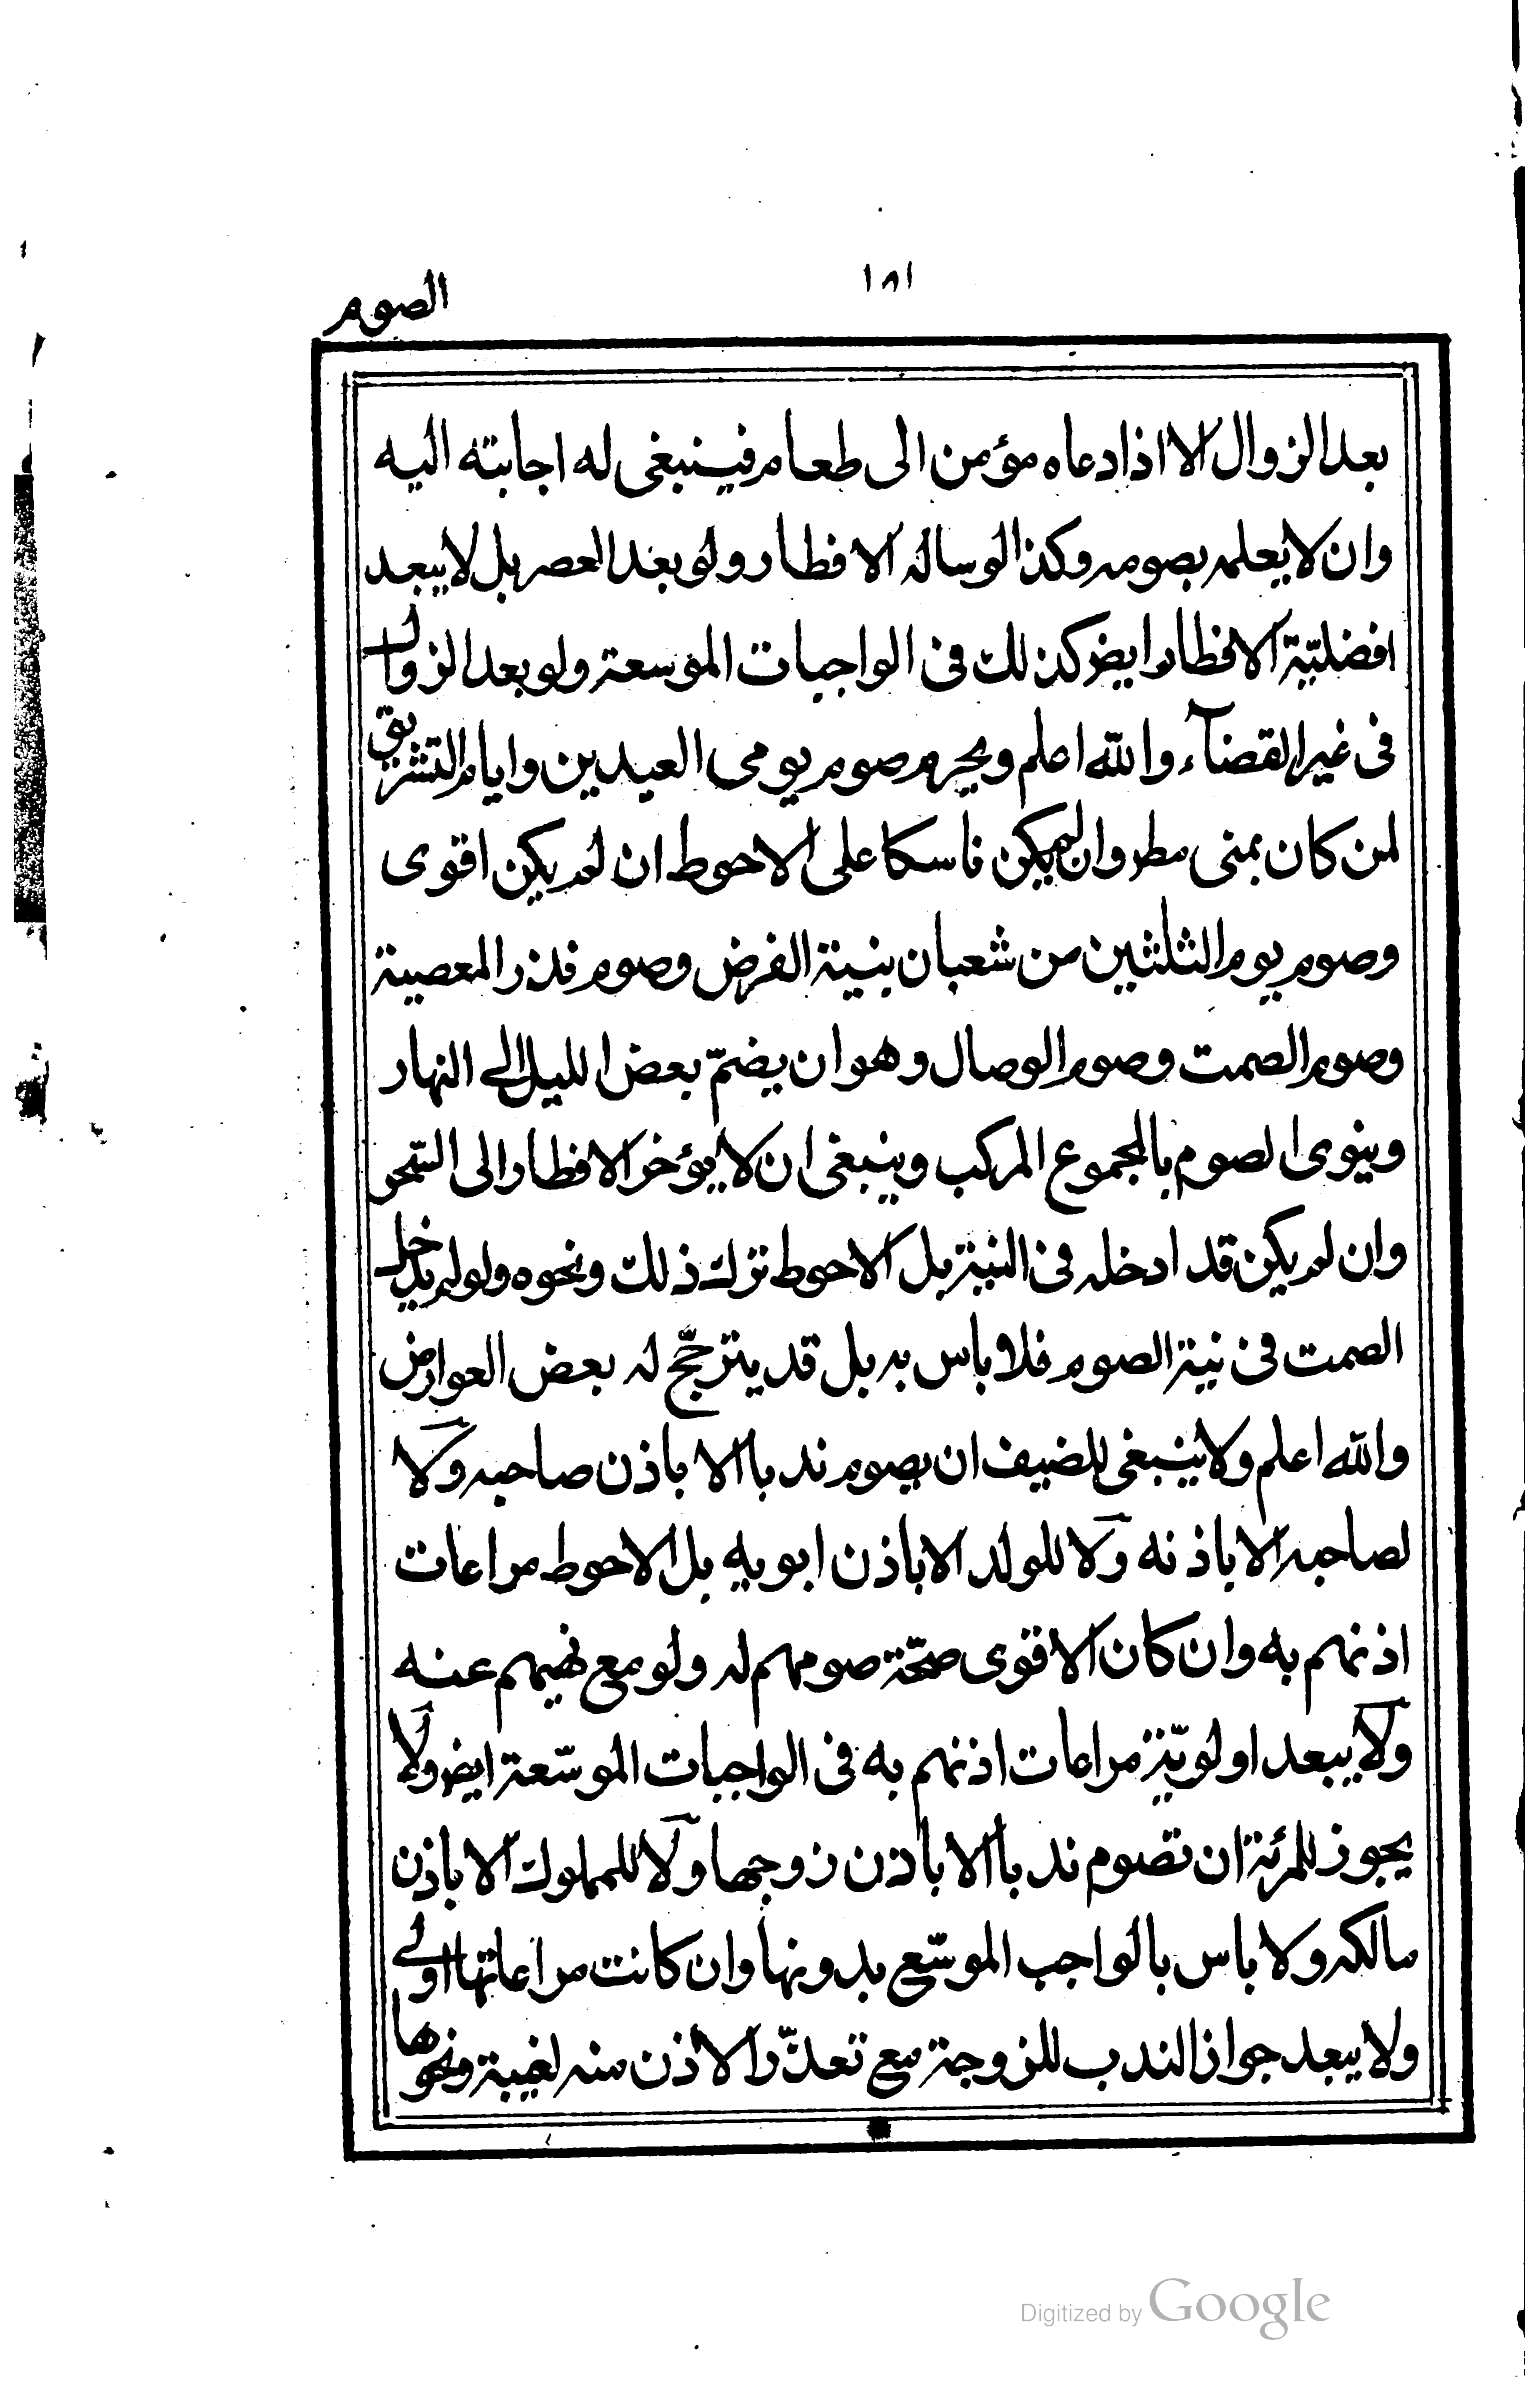 ١٨١
الصوم
بعد الزوال الا اذا دعاه مؤمن الى طعام فينبغى له اجابته اليه
وان لا يعلمه بصومه وكذا لو ساله الافطار ولو بعد العصر بل لا يبعد
افضليّة الافطار ايضا كذلك فى الواجبات الموسعة ولو بعد الزوال
فى غير القضآء والله اعلم ويحرم صوم يومى العيدين وايام التشريق
لمن كان بمنى مط وان لم يكن ناسكا على الاحوط ان لم يكن اقوى
وصوم يوم الثلثين من شعبان بنية الفرض وصوم نذر المعصية
وصوم الصمت وصوم الوصال وهو ان يضمّ بعض الليل الى النهار
وينوى الصوم بالمجموع المركب وينبغى ان لا يؤخر الافطار الى السّحر
وان لم يكن قد ادخله فى النية بل الاحوط ترك ذلك ونحوه ولو لم يدخل
الصمت فى نية الصوم فلا باس به بل قد يترجّح له بعض العوارض
والله اعلم ولا ينبغى للضيف ان يصوم ندبا الا باذن صاحبه ولا
لصاحبه الا باذنه ولا للولد الا باذن ابويه بل الاحوط مراعات
اذنهم به وان كان الاقوى صحّة صومهم له ولو مع نهيهم عنه
ولا يبعد اولويّة مراعات اذنهم به فى الواجبات الموسّعة ايض ولا
يجوز للمرئة ان تصوم ندبا الا باذن زوجها ولا للمملوك الا باذن
مالكه ولا باس بالواجب الموسّع بدونها وان كانت مراعاتها اولى
ولا يبعد جواز الندب للزوجة مع تعذّر الاذن منه لغيبة ونحوها
Digitized by Google